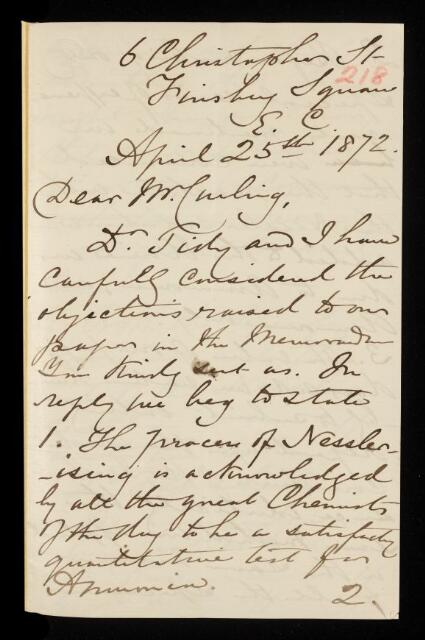 6 Christopher St
218
Finsbury Square
E. C.
April 25th 1872.
Dear Mr. Curling,
Dr. Tidy and I have
carefully considered the
objections raised to our
paper in the Memoranda
You kindly sent us. In
reply we beg to state
1. The process of Nessler-
-ising is acknowledged
by all the great Chemists
of the day to be a satisfactory
quantitative test for
Ammonia.
2.